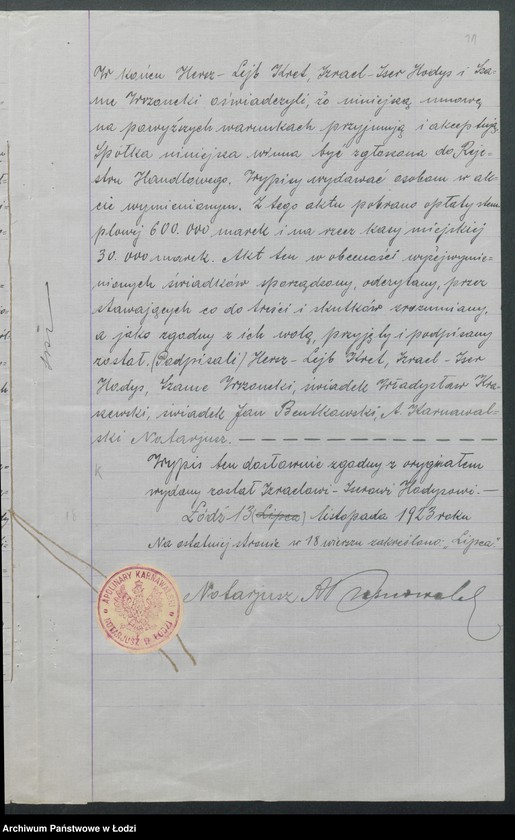 W końcu Hersz-Lejb Kret, Izrael-Iser Hodys i Sza-
me Wrzonski oświadczyli, że niniejszą umowę
na powyższych warunkach przyjmują i akceptują.
Spółka niniejsza winna być zgłoszona do Reje-
stru Handlowego. Wypisy wydawać osobom w ak-
cie wymienionym. Z tego aktu pobrano opłaty stem
plowej 600.000 marek i na rzecz kasy miejskiej
30.000 marek. Akt ten w obecności wyżejwymie-
nionych świadków sporządzony, odczytany, przez
stawających co do treści i skutków zrozumiany,
a jako zgodny z ich wolą, przyjęty i podpisany
został. (Podpisali) Hersz-Lejb Kret, Izrael-Iser
Hodys, Szame Wrzonski, świadek Władysław Kra-
szewski, świadek Jan Bentkowski, A. Karnawal-
ski Notarjusz.
Wypis ten dosłownie zgodny z oryginałem
wydany został Izraelowi-Iserowi Hodysowi.—
Łódź 13 (Lipca) listopada 1923 roku
Na ostatniej stronie w 18 wierszu zakreślono „Lipca".
Notarjusz A Karnawalski
APOLINARY KARNAWALSKI
NOTARJUSZ W ŁODZI
Archiwum Państwowe w Łodzi